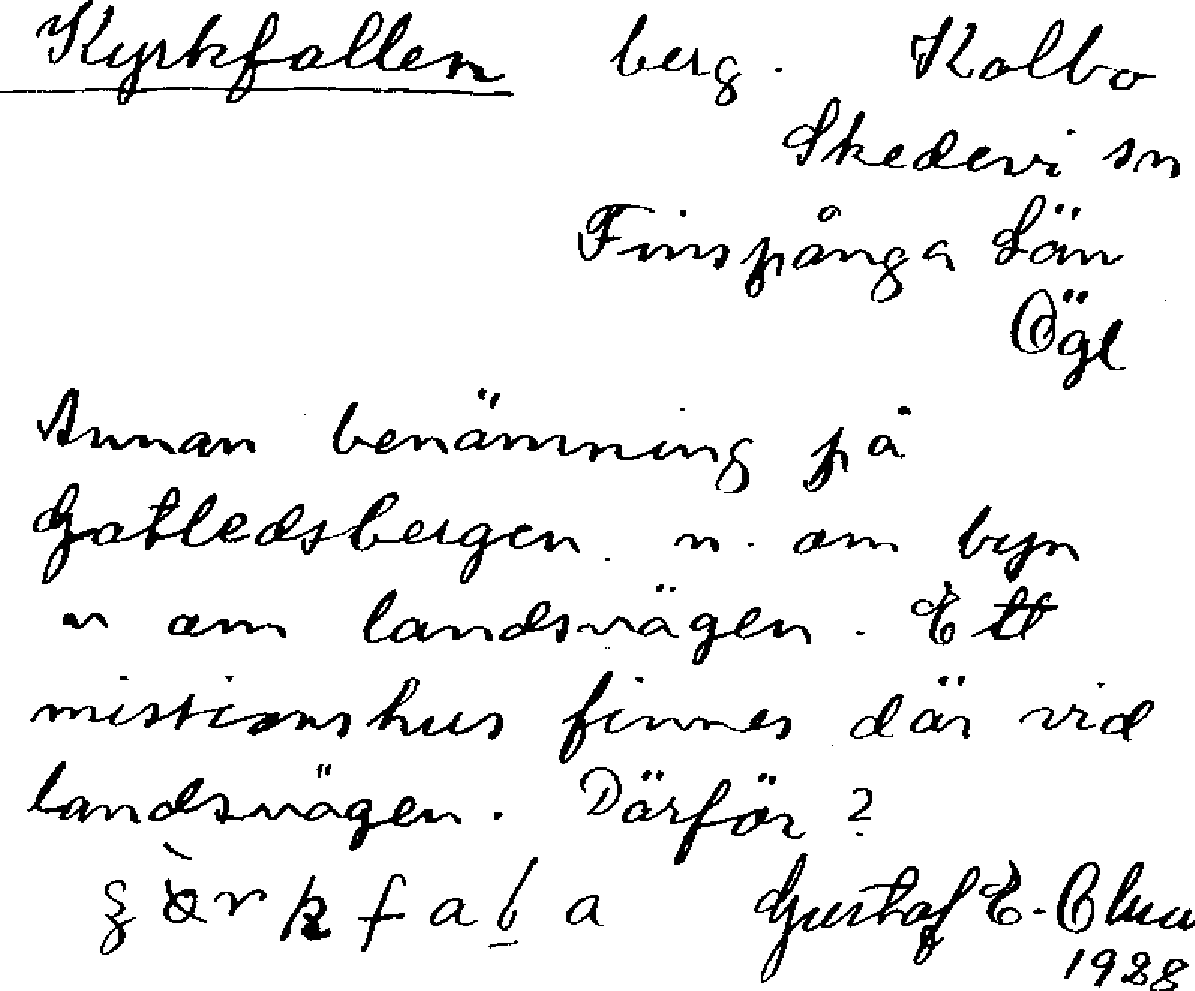 Kyrkfallen berg. Kolbo
Skedevi sn
Finspånga Län
Ögl
Annan benämning på
Gatledsbergen. n. om byn
n om landsvägen. Ett
missionshus finnes där vid
landsvägen. Därför?
Gustaf E.
1928